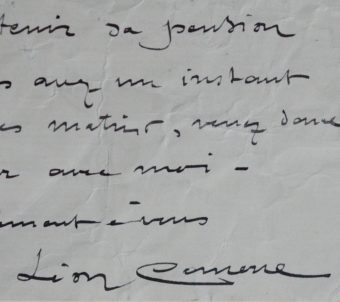 tenir sa pension
s avez un instant
es matins, venez donc
r avec moi -
ement à vous
Léon